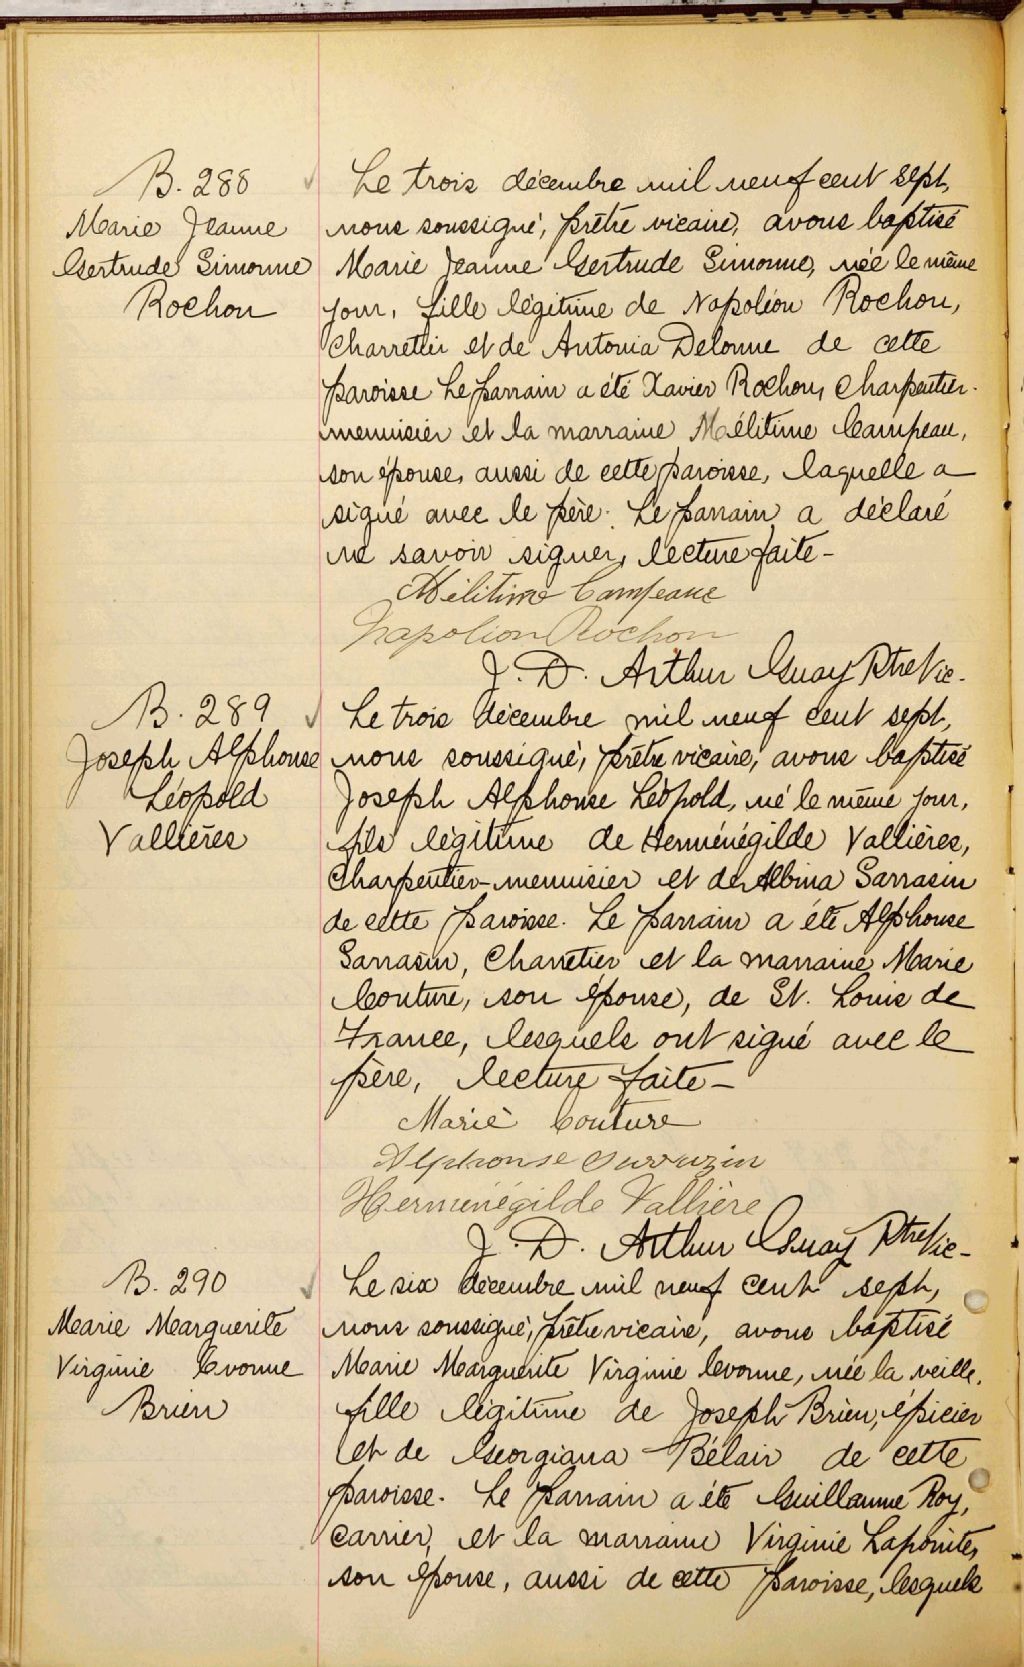 B. 288
Marie Jeanne
Gertrude Simonne
Rochon
Le trois décembre mil neuf cent sept,
nous soussigné, prêtre vicaire, avons baptisé
Marie Jeanne Gertrude Simonne, née le même
jour, fille légitime de Napoléon Rochon,
Charretier et de Antonia Delonne de cette
paroisse Le parrain a été Xavier Rochon, Charpentier-
menuisier et la marraine Mélitime Campeau,
son épouse, aussi de cette paroisse, laquelle a
signé avec le père. Le parrain a déclaré
ne savoir signer, lecture faite -
Mélitime Campeau
Napolion Rochon
J. D. Arthur Guay Ptre Vic.
B. 289
Joseph Alphonse
Léopold
Vallières
Le trois décembre mil neuf cent sept,
nous soussigné, prêtre vicaire, avons baptisé
Joseph Alphonse Léopold, né le même jour,
fils légitime de Herménégilde Vallières,
Charpentier-menuisier et de Albina Sarrasin
de cette paroisse. Le parrain a été Alphonse
Sarrasin, Charretier et la marraine Marie
Couture, son épouse, de St. Louis de
France, lesquels ont signé avec le
père, lecture faite -
Marie Couture
Alphonse Surruzin
Herménégilde Vallière
J. D. Arthur Guay Ptre Vic-
B. 290
Marie Marguerite
Virginie Evonne
Brien
Le six décembre mil neuf cent sept,
nous soussigné, prêtre vicaire, avons baptisé
Marie Marguerite Virginie Evonne, née la veille,
fille légitime de Joseph Brien, épicier
et de Georgiana Bélair de cette
paroisse. Le parrain a été Guillaume Roy,
carrier, et la marraine Virginie Lapointe,
son épouse, aussi de cette paroisse, lesquels